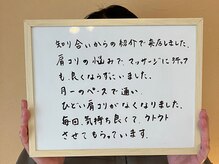 知り合いからの紹介で来店しました。
肩コリの悩みでマッサージに行っても
良くならずにいました。
月一のペースで通い
ひどい肩コリがなくなりました。
毎回、気持ち良くて、ウトウト
させてもらっています。